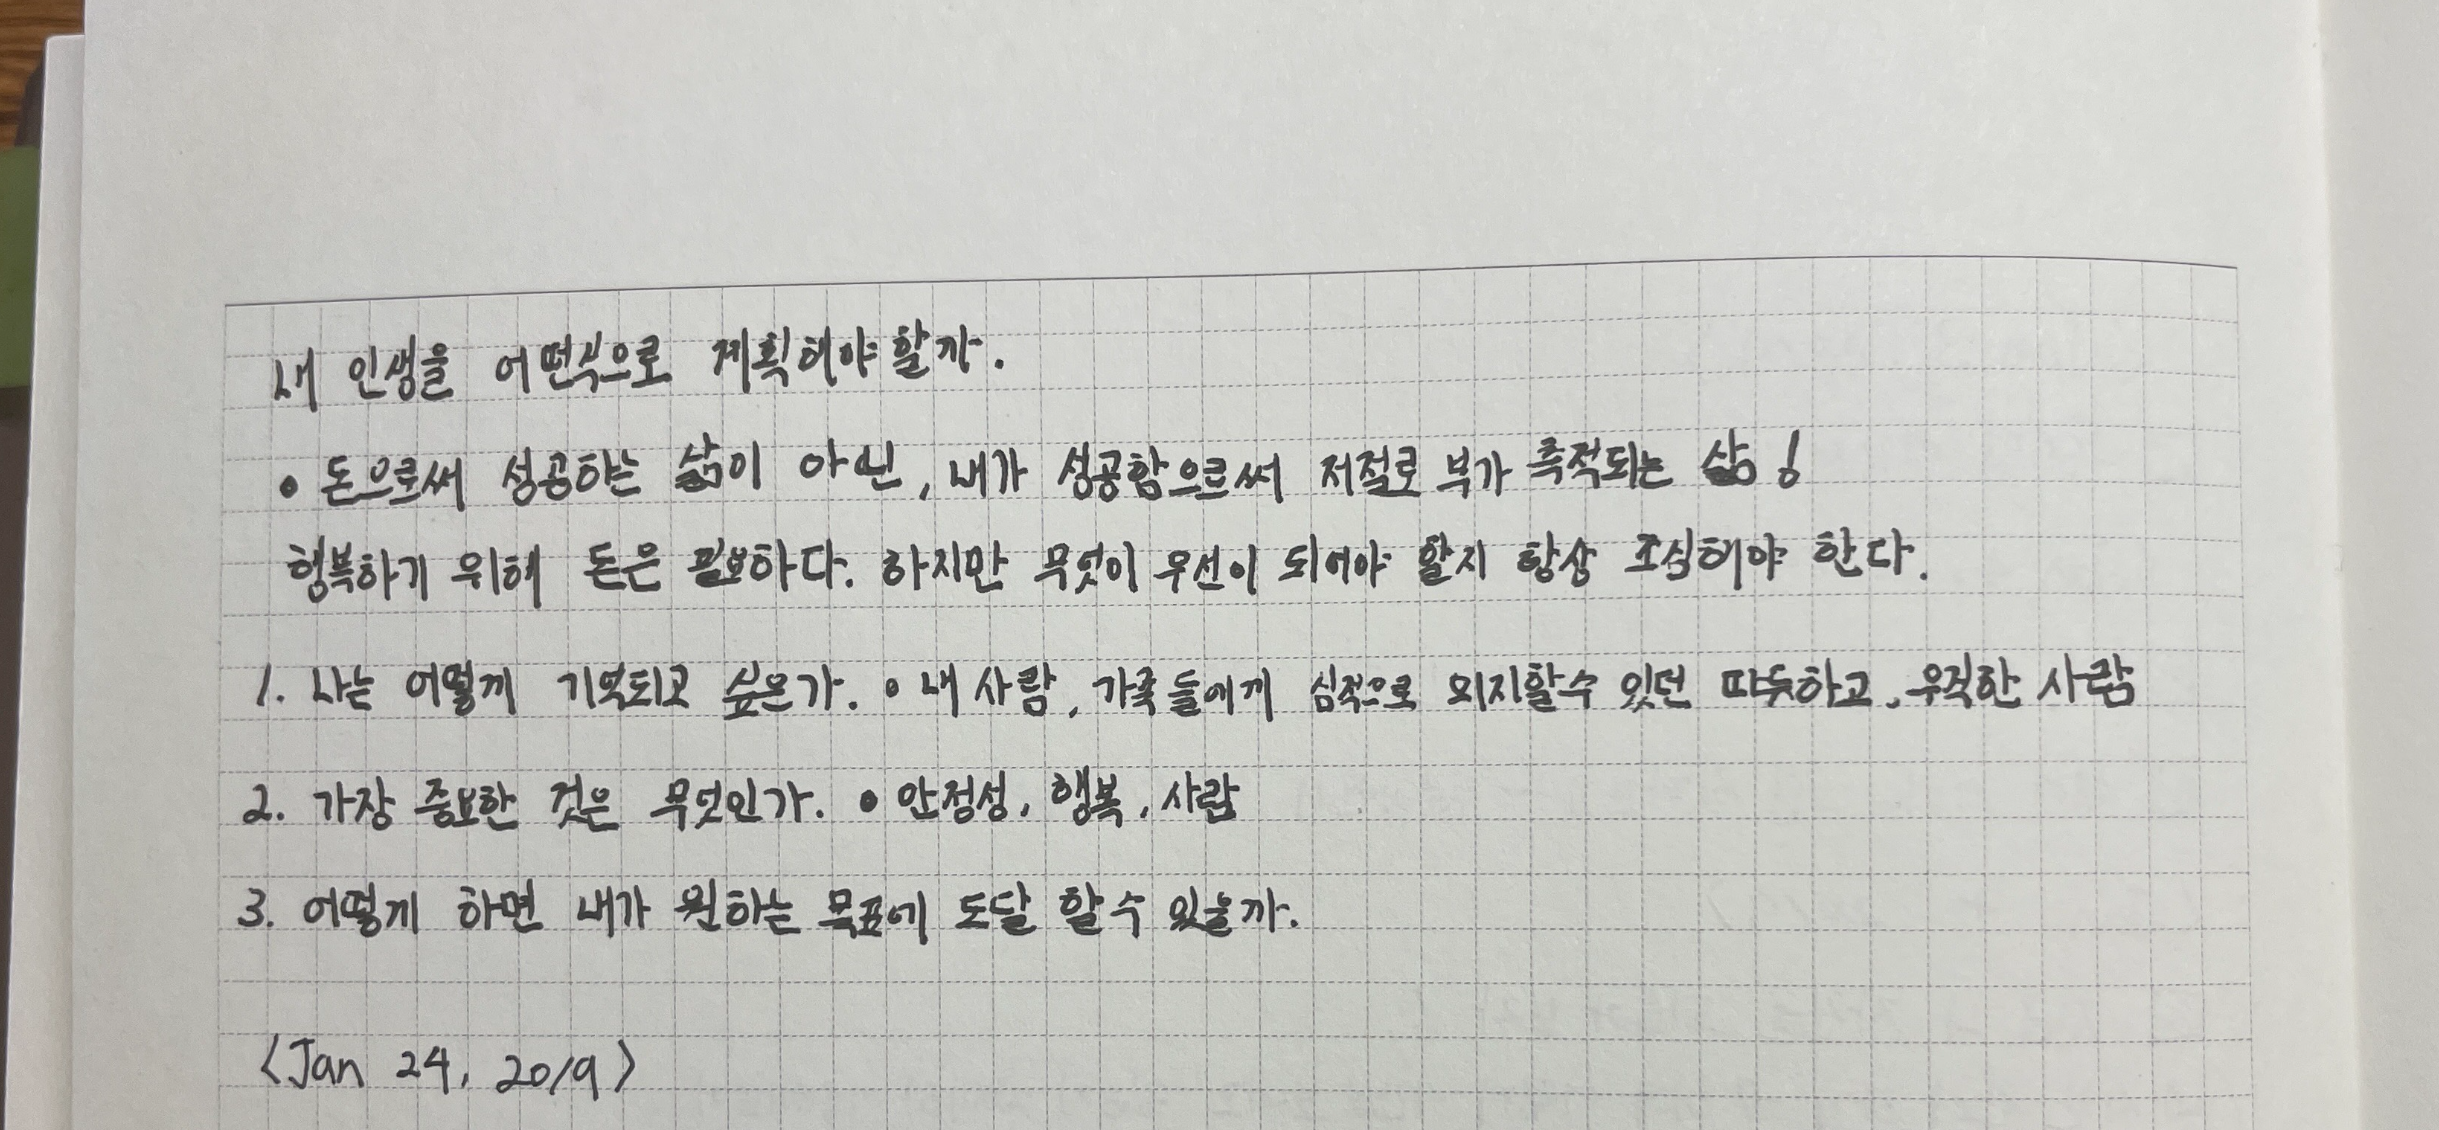 내 인생을 어떤식으로 계획해야 할까.
• 돈으로써 성공하는 삶이 아닌, 내가 성공함으로써 저절로 부가 축적되는 삶!
행복하기 위해 돈은 필요하다. 하지만 무엇이 우선이 되어야 할지 항상 조심해야 한다.
1. 나는 어떻게 기억되고 싶은가. • 내 사람, 가족들에게 심적으로 의지할수 있던 따듯하고, 우직한 사람
2. 가장 중요한 것은 무엇인가. • 안정성, 행복, 사람
3. 어떻게 하면 내가 원하는 목표에 도달 할수 있을까.
<Jan 24, 2019>